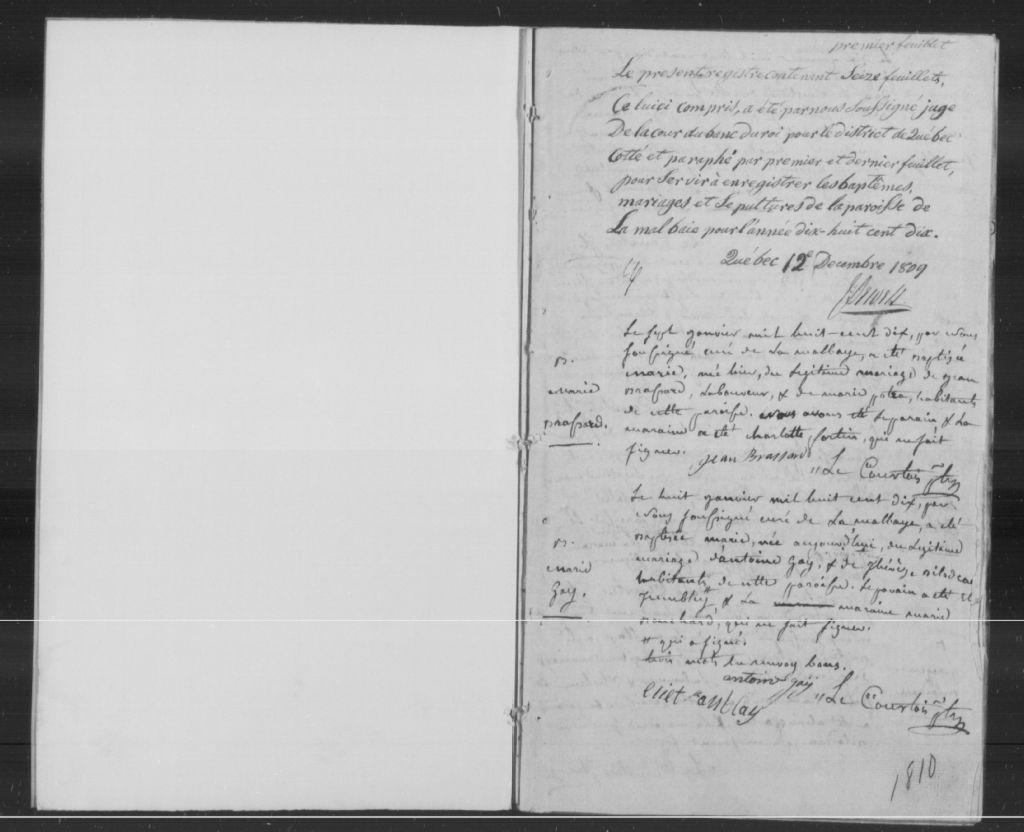 premier feuillet
Le present registre contenant Seize feuillets,
Ce luici compris, a été par nous soussigné juge
De la cour du banc du roi pour le district de Québec
Cotté et paraphé par premier et dernier feuillet,
pour Servir à enregistrer les baptêmes,
mariages et Sepultures de la paroisse de
La malbaie pour l'année dix-huit cent dix.
Québec 12e Decembre 1809
Le sept janvier mil huit-cent dix, par nous
soussigné, curé de La malbaye, a été baptisée
B.
marie
Brassard.
marie, née hier, du legitime mariage de jean
Brassard, Laboureur, & de marie, habitants
de cette paroisse. Le parain & La
maraine a été charlotte fortin, qui ne sait
signer. jean Brassard
Le Courtois ptre
Le huit janvier mil huit cent dix, par
Nous soussigné curé de La malbaye, a été
B.
marie
Gay.
baptisée marie, née aujourd'hui, du Legitime
mariage d'antoine Gay, & de
habitants de cette paroisse. Le parain a été
Tremblay # & La maraine marie
, qui ne sait signer.
# qui a signé.
trois mots du renvoy bons.
antoine gay
Le Courtois ptre
1810